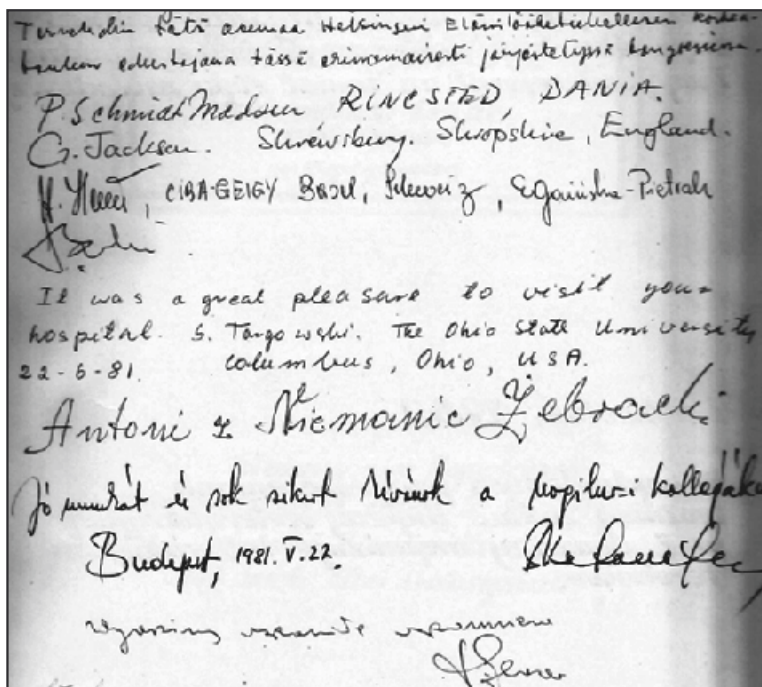 Tervehdin tätä asemaa Helsingin Eläinlääketieteellisen korkea-
koulun edustajana tässä erinomaisesti järjestetyssä kongressissa.
P. Schmidt Madsen RINGSTED, DANIA.
G. Jackson. Shrewsbury. Shropshire, England.
CIBA-GEIGY Basel, Schweiz,
It was a great pleasure to visit your
hospital. S. Targowski. The Ohio State University
22-5-81. Columbus, Ohio, USA.
Antoni z Niemanic Żebracki
Jó munkát és sok sikert kivánok a kollegáknak
Budapest, 1981. V. 22.